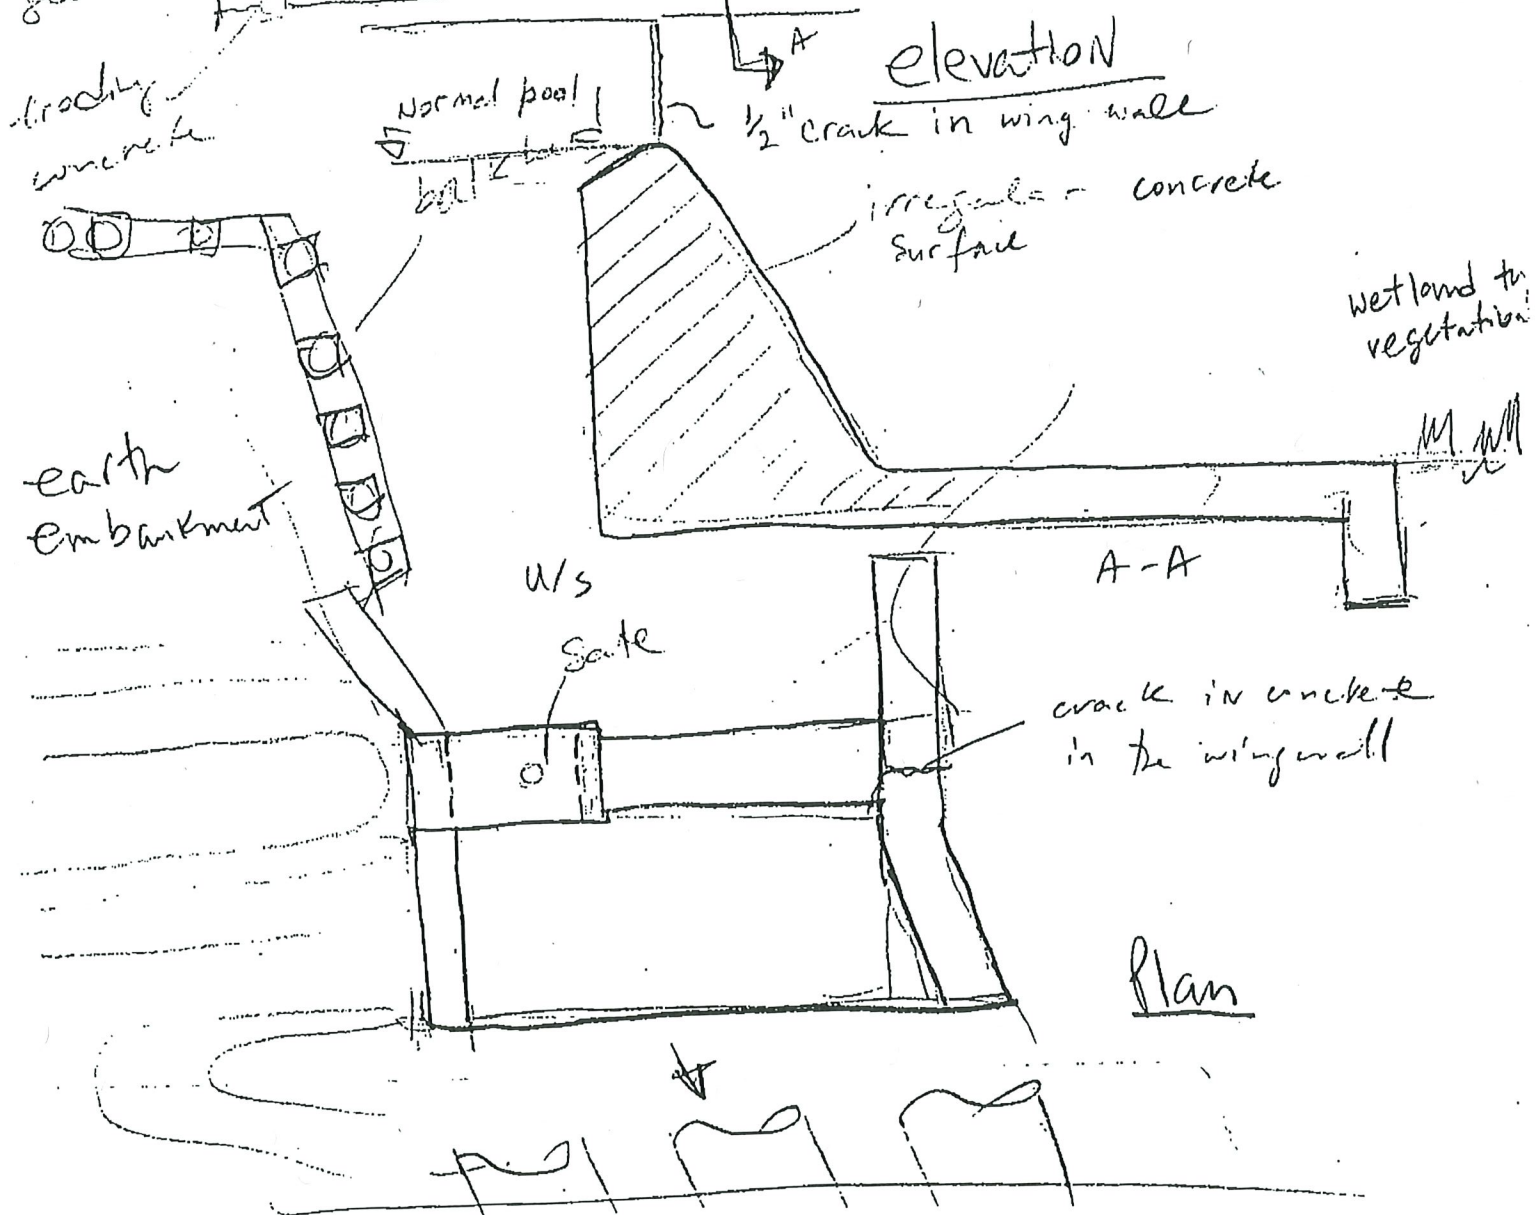 A
elevation
Normal pool
1/2" crack in wing wall
concrete
irregular concrete
surface
wetland
vegetation
earth
embankment
U/S
A-A
Gate
crack in concrete
in the wingwall
Plan